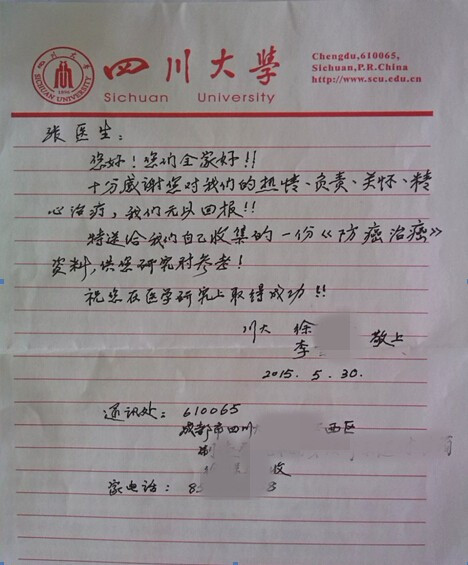 四川大学
SICHUAN UNIVERSITY
1896
四川大學
Sichuan University
Chengdu,610065,
Sichuan,P.R.China
http://www.scu.edu.cn
张医生:
您好!您们全家好!!
十分感谢您对我们的热情、负责、关怀、精
心治疗,我们无以回报!!
特送给我们自己收集的一份《防癌治癌》
资料,供您研究时参考!
祝您在医学研究上取得成功!!
川大 徐
李 敬上
2015.5.30.
通讯处: 610065
成都市四川 西区
收
家电话: 8 3